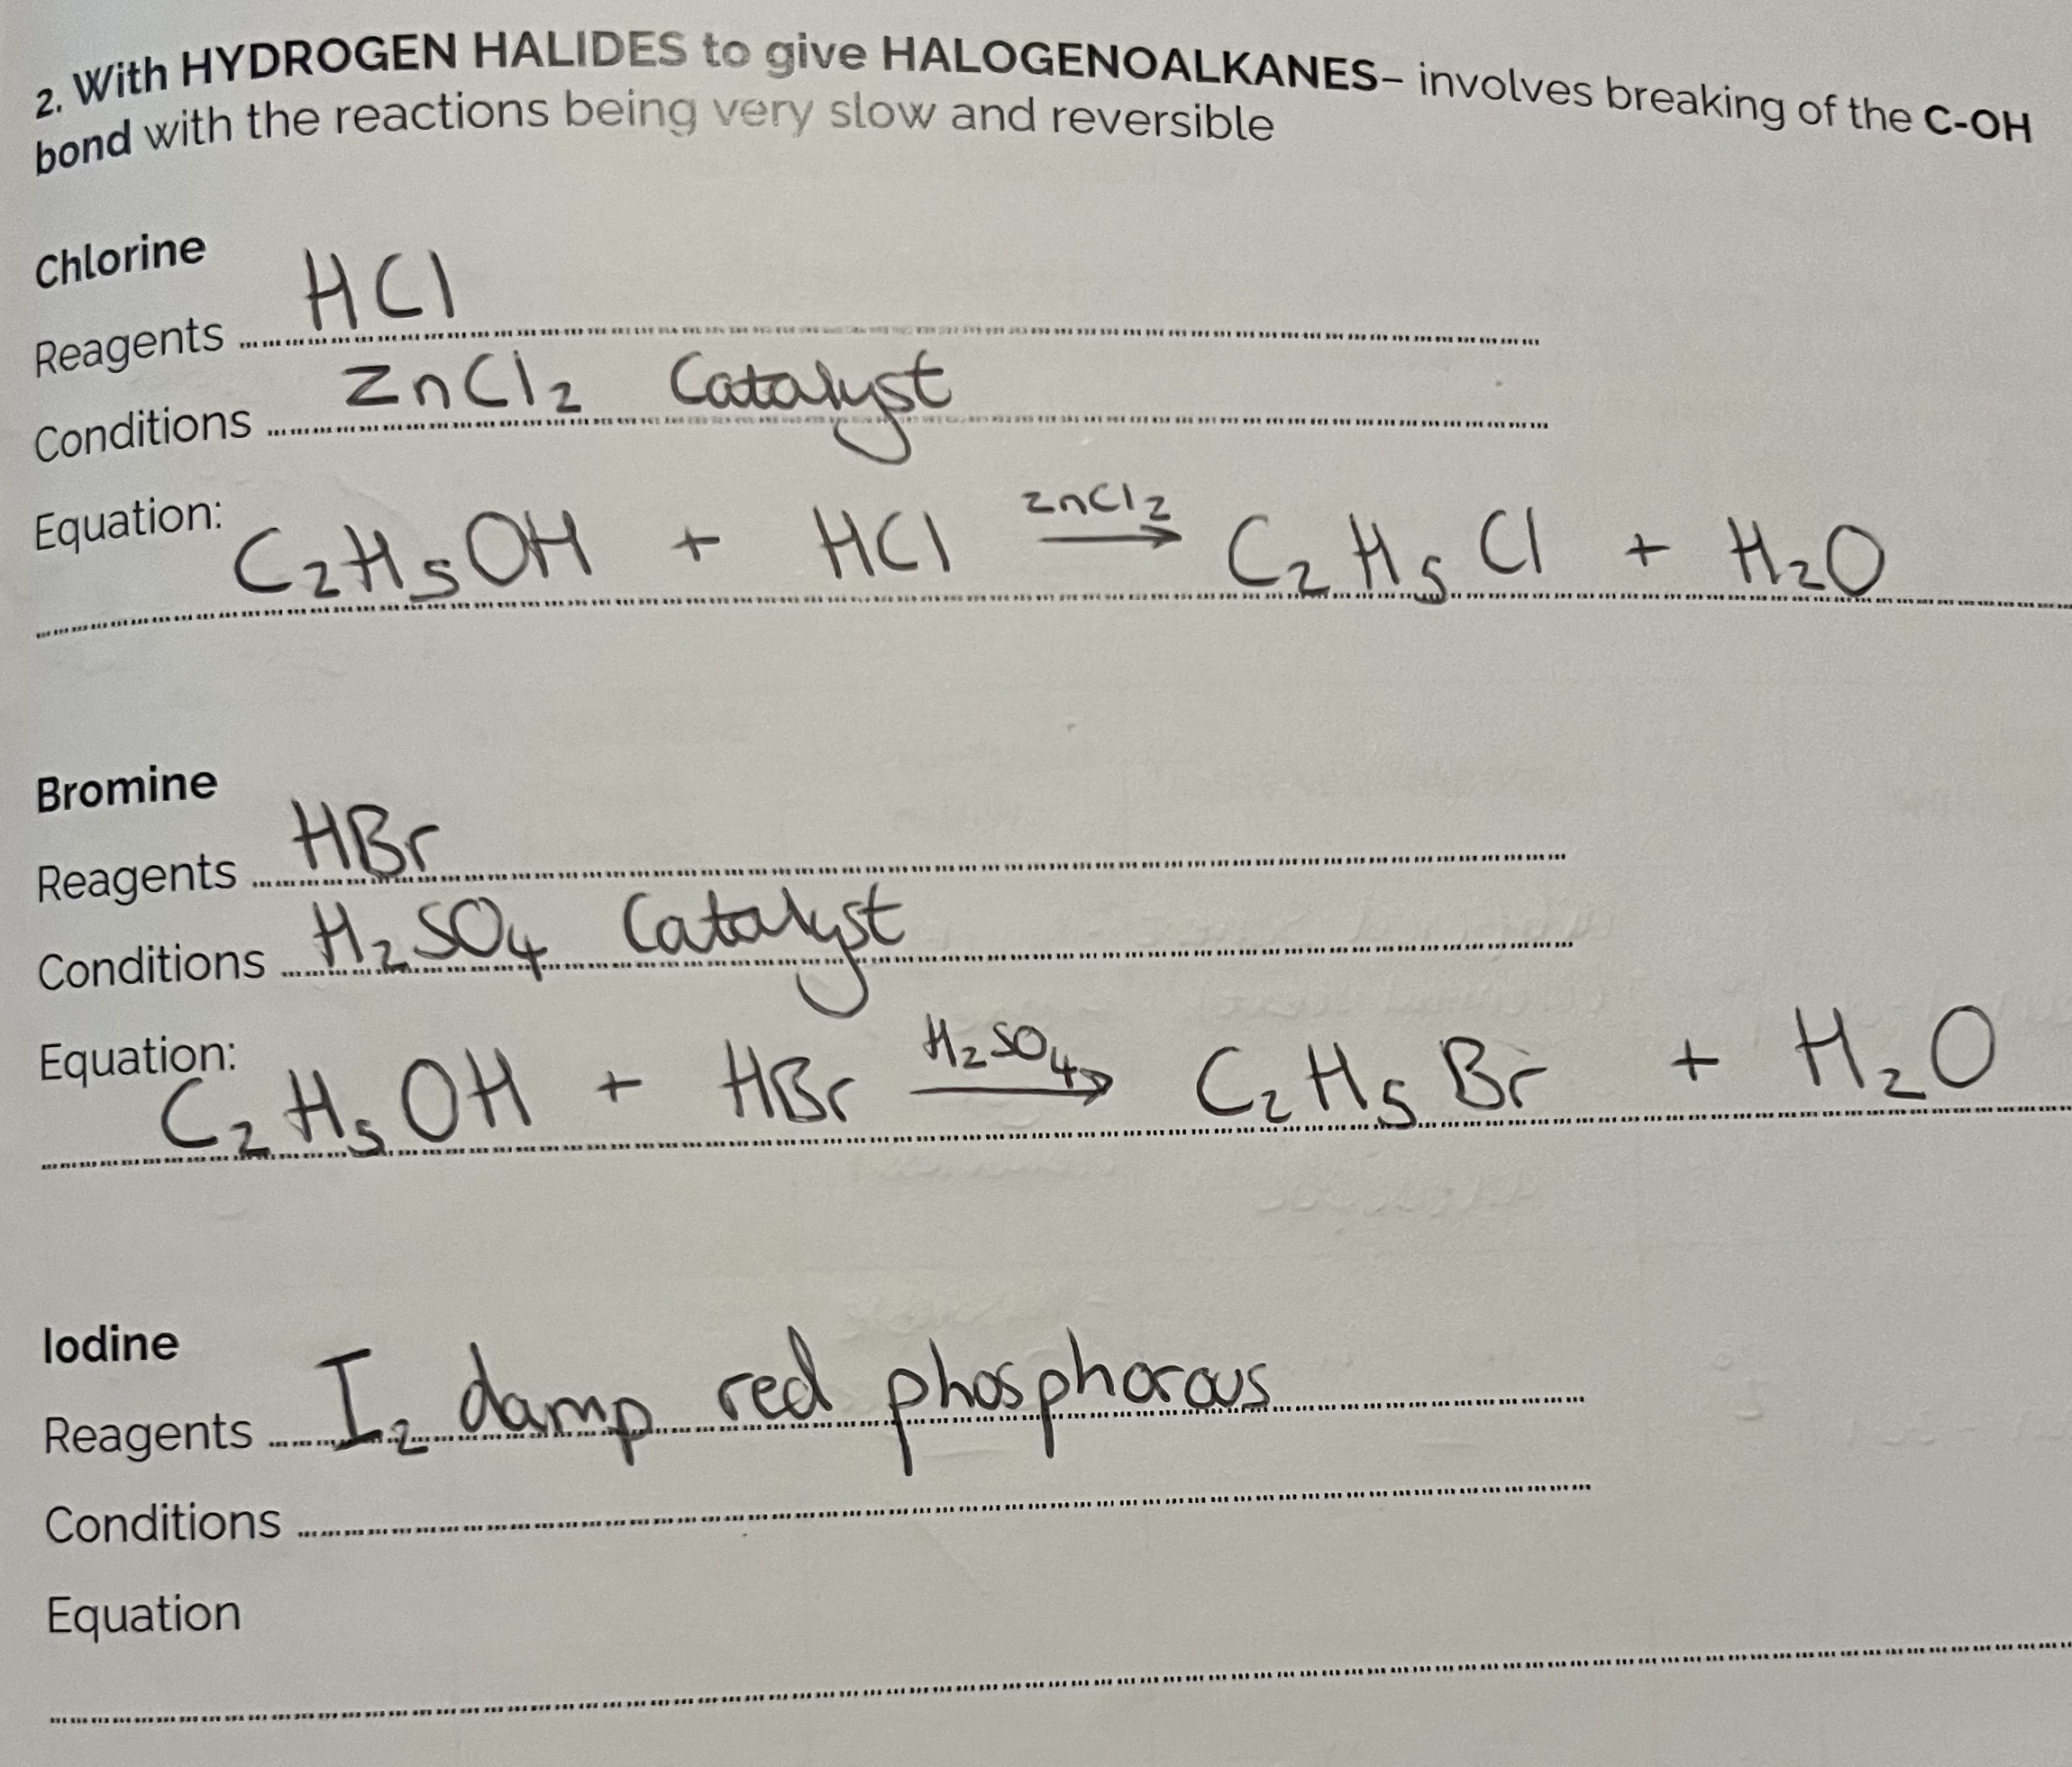 2. With HYDROGEN HALIDES to give HALOGENOALKANES– involves breaking of the C-OH
bond with the reactions being very slow and reversible
Chlorine
Reagents HCl
Conditions ZnCl₂ Catalyst
Equation:
C₂H₅OH + HCl ZnCl₂→ C₂H₅Cl + H₂O
Bromine
Reagents HBr
Conditions H₂SO₄ Catalyst
Equation:
C₂H₅OH + HBr H₂SO₄→ C₂H₅Br + H₂O
Iodine
Reagents I₂ damp red phosphorous
Conditions
Equation